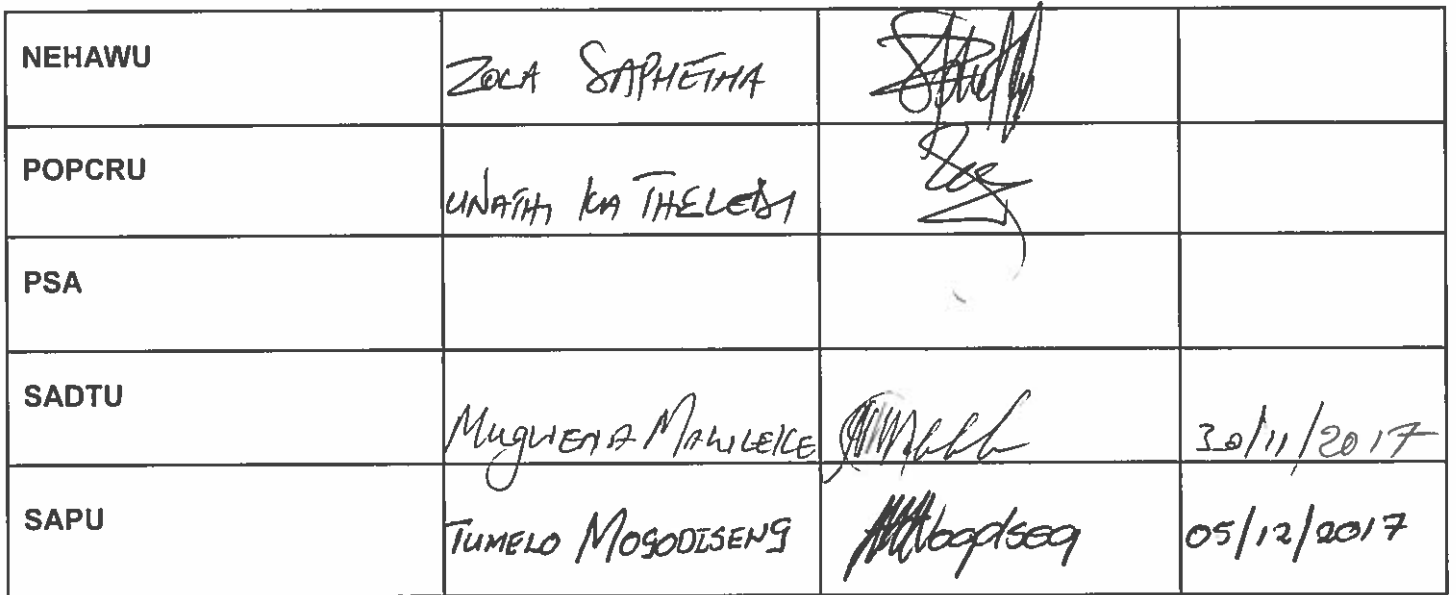 NEHAWU ZOLA SAPHETHA
POPCRU UNATHI KA THELEDI
PSA
SADTU MUGWENA MALULEKE 30/11/2017
SAPU TUMELO MOGODISENG 05/12/2017